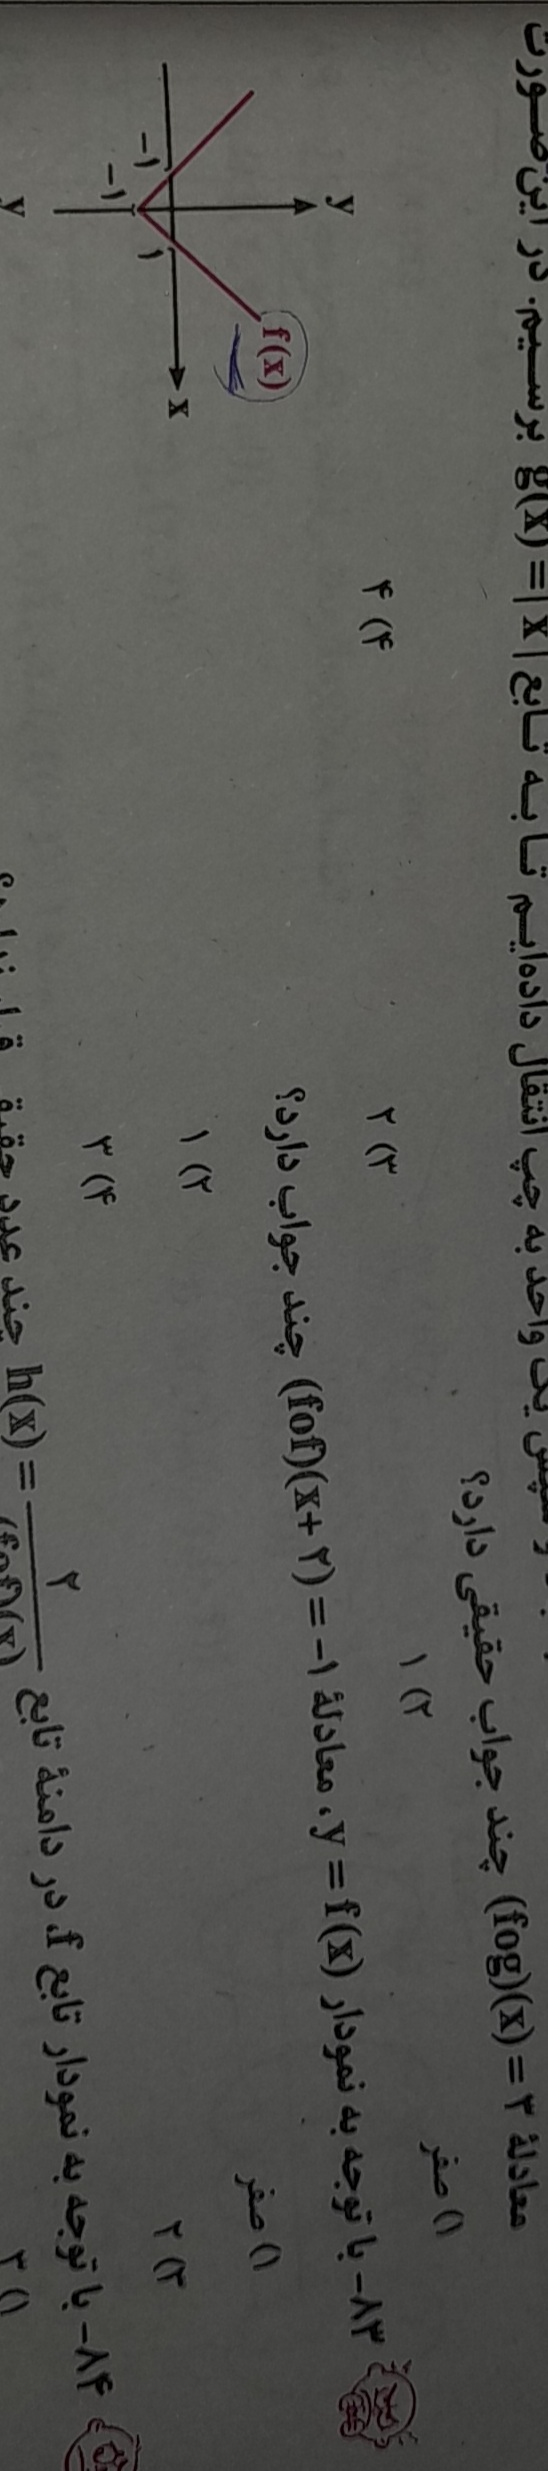 صورت این در برسیم. g(x) =| x | تابع به تا داده‌ایم انتقال چپ به واحد یک سپس و
معادلهٔ (fog)(x) = ۳ چند جواب حقیقی دارد؟
۱) صفر ۲) ۱ ۳) ۲ ۴) ۴
۸۳- با توجه به نمودار y = f(x)، معادلهٔ (fof)(x+۲) = -۱ چند جواب دارد؟
۱) صفر ۲) ۱
۳) ۲ ۴) ۳
y
f(x)
-۱ ۱ x
-۱
۸۴- با توجه به نمودار تابع f، در دامنهٔ تابع h(x) = ۲/(fof)(x) چند عدد حقیقی قرار ندارد؟
۱) ۲
y